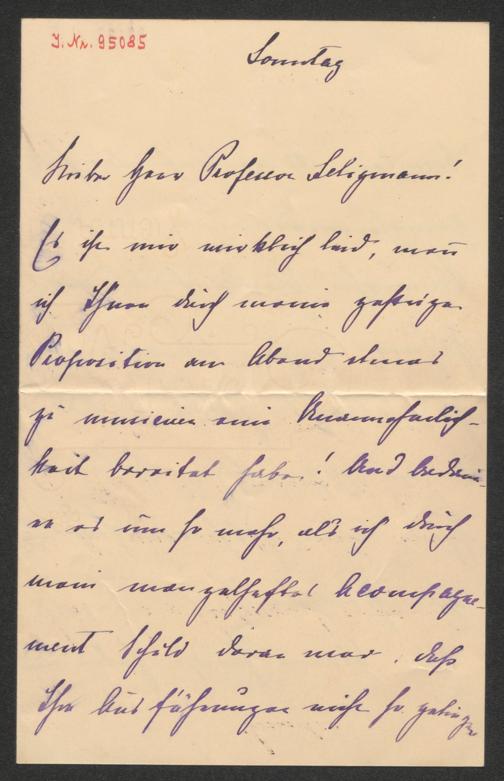 J. Nr. 95085
Sonntag
Lieber Herr Professor Seligmann!
Es ist mir wirklich leid, wenn
ich Ihnen durch meine gestrige
Proposition am Abend etwas
zu musicieren eine Unannehmlich-
keit bereitet habe! Und bedau-
re es um so mehr, als ich durch
mein mangelhaftes Acompagne-
ment Schuld daran war, daß
Ihre Ausführungen nicht so gelingen